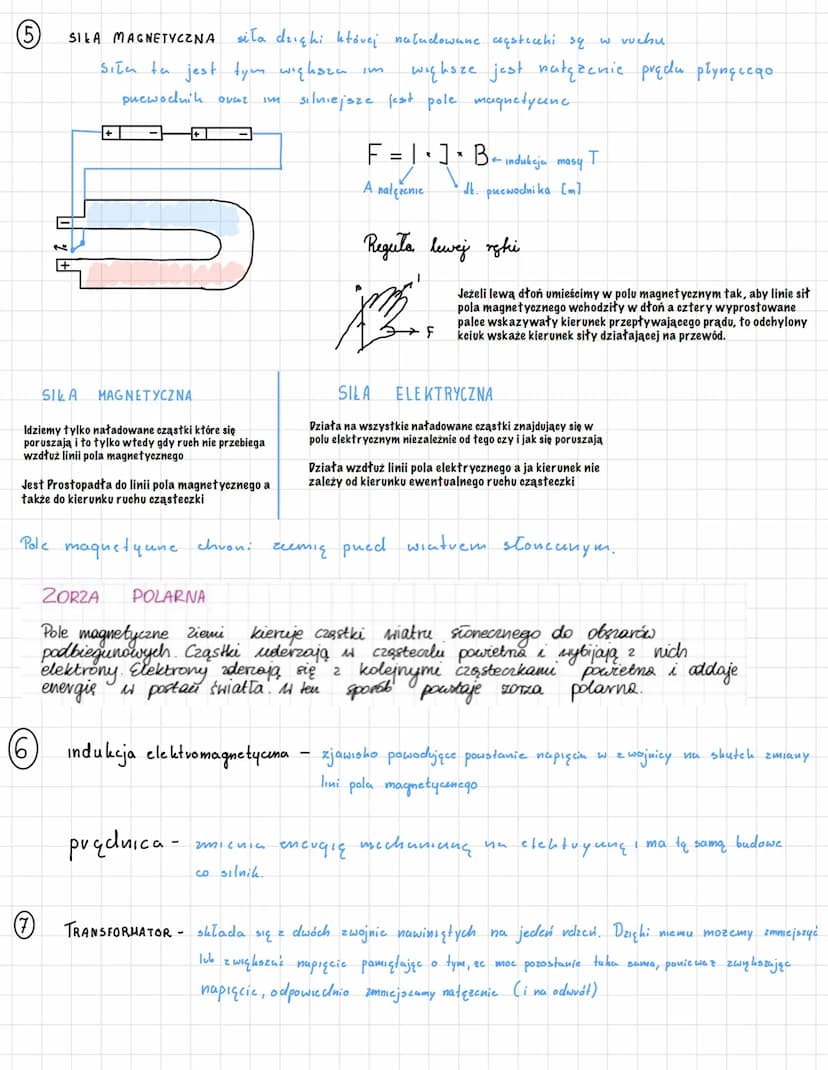 5 SIŁA MAGNETYCZNA siła dzięki której naładowane cząsteczki są w ruchu
Siła ta jest tym większa im większe jest natężenie prądu płynącego
przewodnik oraz im silniejsze jest pole magnetyczne
+ - + -
F = I · J · B ← indukcja masy T
A natężenie
dł. przewodnika [m]
-
+
Reguła lewej ręki
I
F
Jeżeli lewą dłoń umieścimy w polu magnetycznym tak, aby linie sił
pola magnetycznego wchodziły w dłoń a cztery wyprostowane
palce wskazywały kierunek przepływającego prądu, to odchylony
kciuk wskaże kierunek siły działającej na przewód.
SIŁA MAGNETYCZNA
Idziemy tylko naładowane cząstki które się
poruszają i to tylko wtedy gdy ruch nie przebiega
wzdłuż linii pola magnetycznego
Jest Prostopadła do linii pola magnetycznego a
także do kierunku ruchu cząsteczki
SIŁA ELEKTRYCZNA
Działa na wszystkie naładowane cząstki znajdujący się w
polu elektrycznym niezależnie od tego czy i jak się poruszają
Działa wzdłuż linii pola elektrycznego a ja kierunek nie
zależy od kierunku ewentualnego ruchu cząsteczki
Pole magnetyczne chroni ziemię przed wiatrem słonecznym.
ZORZA POLARNA
Pole magnetyczne Ziemi kieruje cząstki wiatru słonecznego do obszarów
podbiegunowych. Cząstki uderzają w cząsteczki powietrza i wybijają z nich
elektrony. Elektrony zderzają się z kolejnymi cząsteczkami powietrza i oddaje
energię w postaci światła. W ten sposób powstaje zorza polarna.
6 indukcja elektromagnetyczna – zjawisko powodujące powstanie napięcia w zwojnicy na skutek zmiany
lini pola magnetycznego
prądnica - zmienia energię mechaniczną na elektryczną i ma tą samą budowę
co silnik.
7 TRANSFORMATOR - składa się z dwóch zwojnic nawiniętych na jedeń rdzeń. Dzięki niemu możemy zmniejszyć
lub zwiększać napięcie pamiętając o tym, że moc pozostanie taka sama, ponieważ zwiększając
napięcie, odpowiednio zmniejszamy natężenie (i na odwrót)